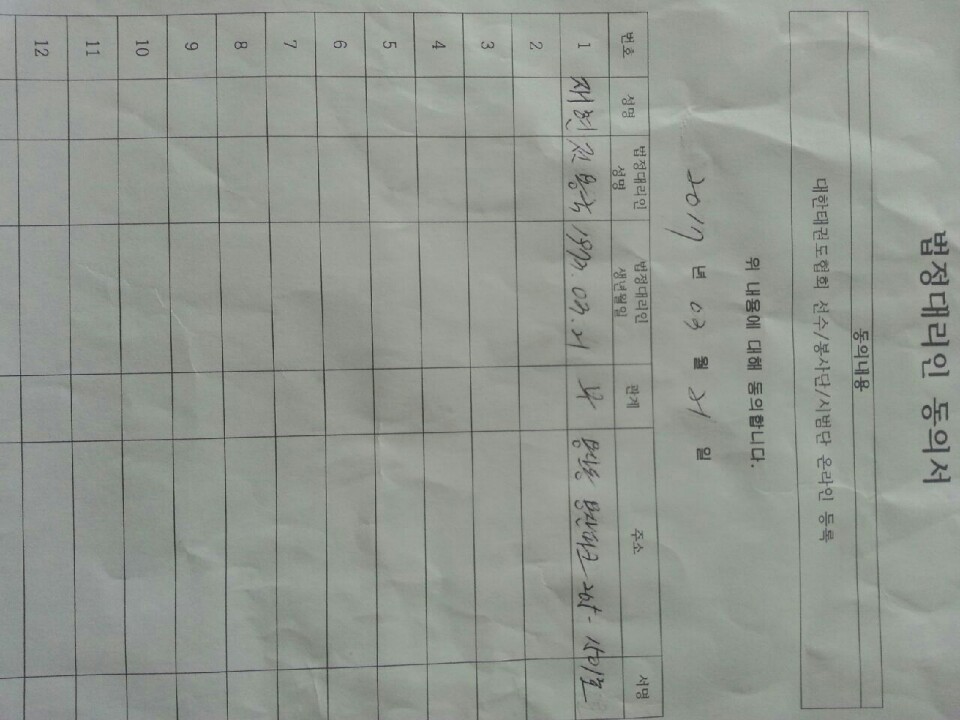 법정대리인 동의서
동의내용
대한태권도협회 선수/봉사단/시범단 온라인 등록
위 내용에 대해 동의합니다.
2017 년 03 월 21 일
번호 성명 법정대리인 성명 법정대리인 생년월일 관계 주소 서명
1 부
2
3
4
5
6
7
8
9
10
11
12